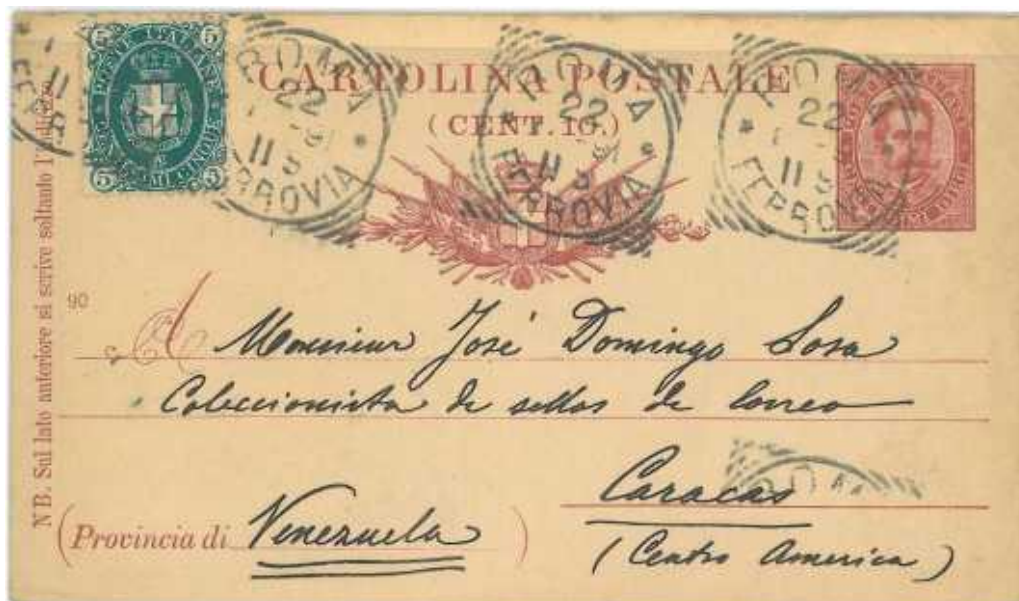 POSTE ITALIANE
5 5
5 5
CARTOLINA POSTALE
(CENT. 10.)
ROMA
22
11 S
FERROVIA
ROMA
22
11 S
FERROVIA
ROMA
22
11 S
FERROVIA
NB. Sul lato anteriore si scrive soltanto l'indirizzo
90
A Monsieur José Domingo Sosa
Coleccionista de sellos de correo
ROMA
Caracas
(Provincia di Venezuela)
(Centro America)